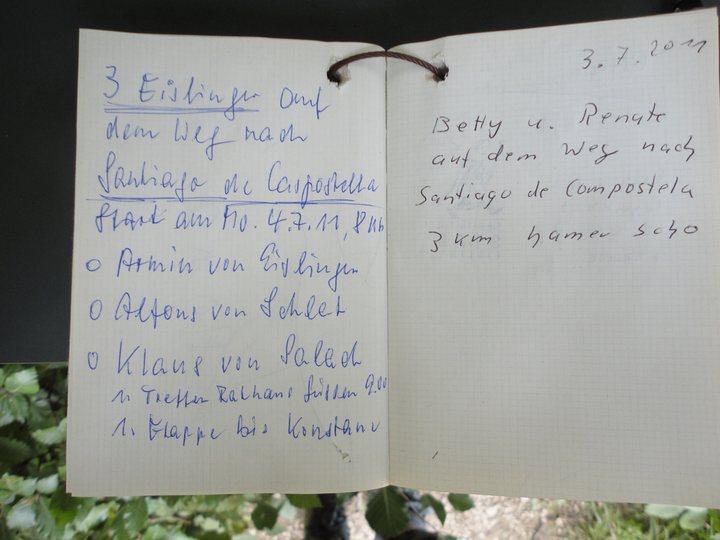 3 Eislinger auf
dem Weg nach
Santiago de Caspostella
Start am Mo. 4.7.11, 8 Uhr
o Armin von Eislingen
o Alfons von Schlat
o Klaus von Salach
1. Treffen Rathaus Süssen 9.00
1. Etappe bis Konstanz
3.7.2011
Betty u. Renate
auf dem Weg nach
Santiago de Compostela
3 km hamer scho